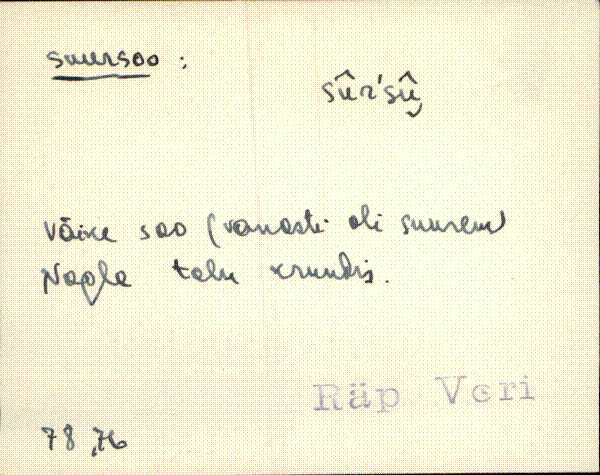 suursoo :
sûr'sû̬
Väike soo (vanasti oli suurem)
Napla talu krundis.
Räp Veri
78 76